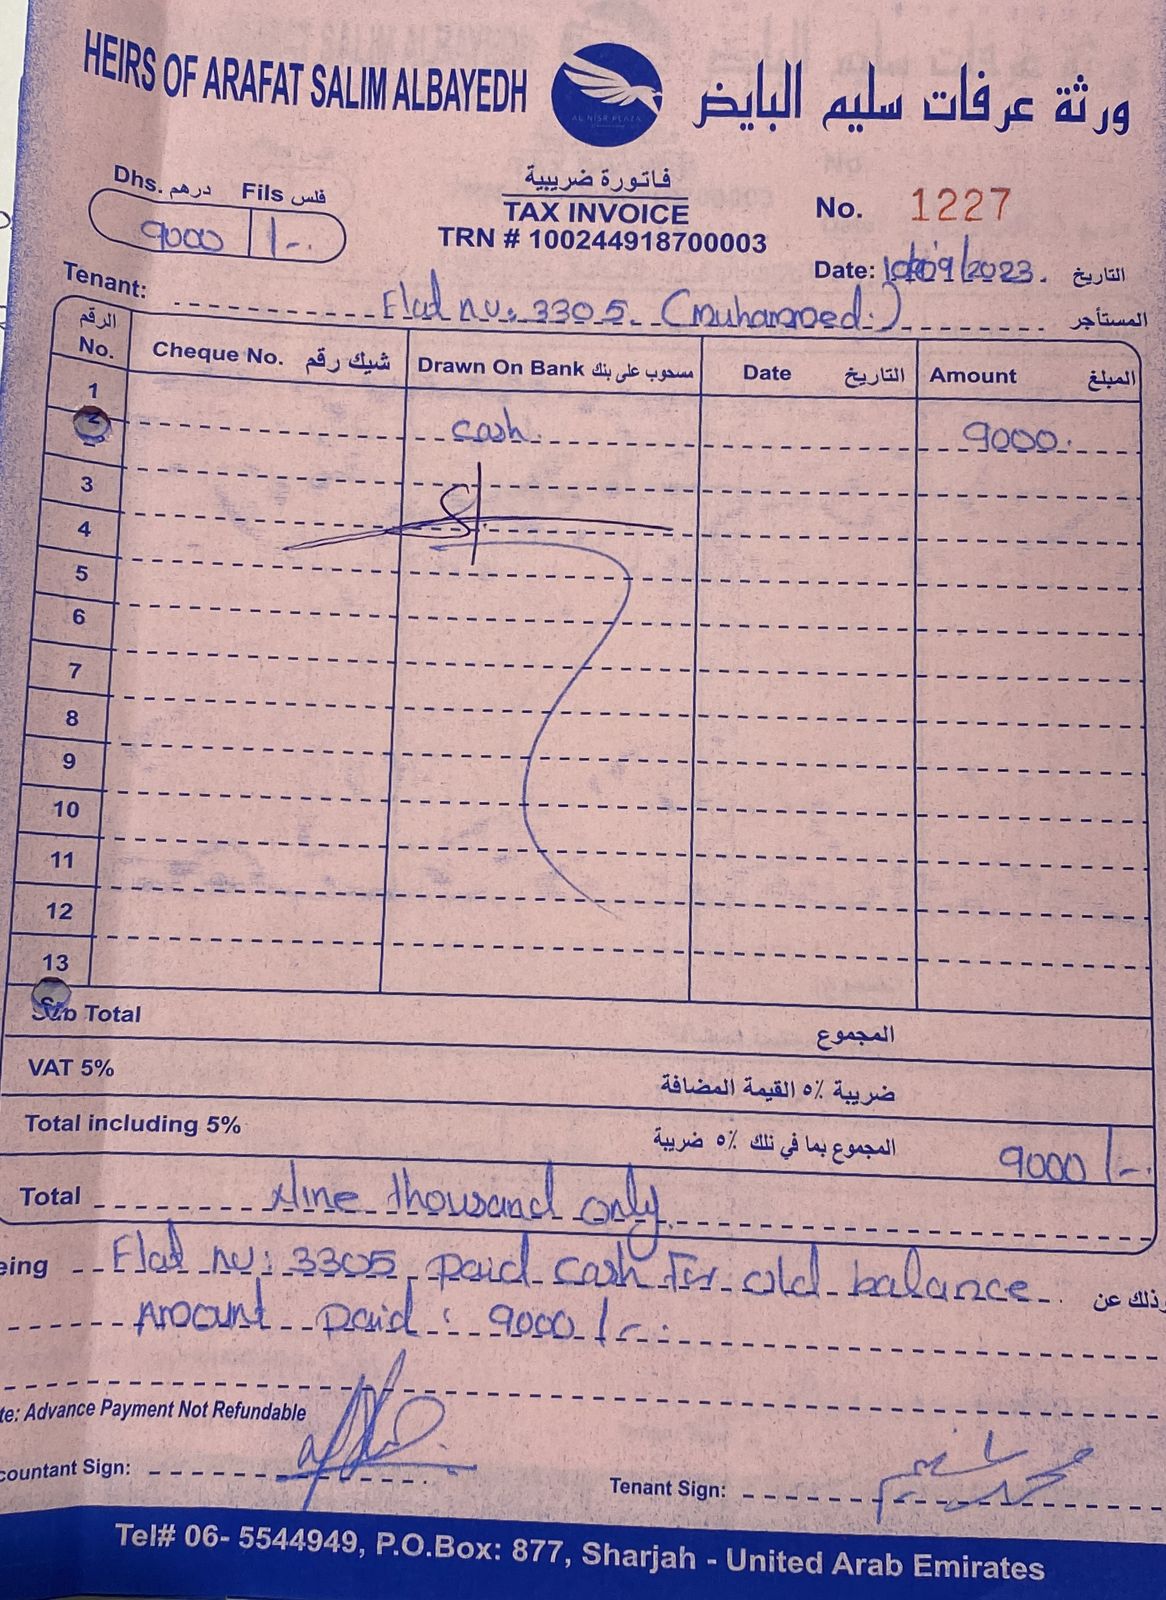 HEIRS OF ARAFAT SALIM ALBAYEDH
AL NISR PLAZA
ورثة عرفات سليم البايض
Dhs. درهم Fils فلس
9000 /-.
فاتورة ضريبية
TAX INVOICE
TRN # 100244918700003
No. 1227
Date: /09/2023. التاريخ
Tenant: Flat nu: 3305. (muhammed.) المستأجر
الرقم No. Cheque No. شيك رقم Drawn On Bank مسحوب على بنك Date التاريخ Amount المبلغ
1
2 cash. 9000.
3
4
5
6
7
8
9
10
11
12
13
Sub Total المجموع
VAT 5% ضريبة ٥٪ القيمة المضافة
Total including 5% المجموع بما في ذلك ٥٪ ضريبة 9000/-.
Total Nine thousand only.
eing Flat nu: 3305 paid cash for old balance. وذلك عن
Amount paid: 9000/-.
te: Advance Payment Not Refundable
countant Sign:
Tenant Sign: محمد
Tel# 06- 5544949, P.O.Box: 877, Sharjah - United Arab Emirates